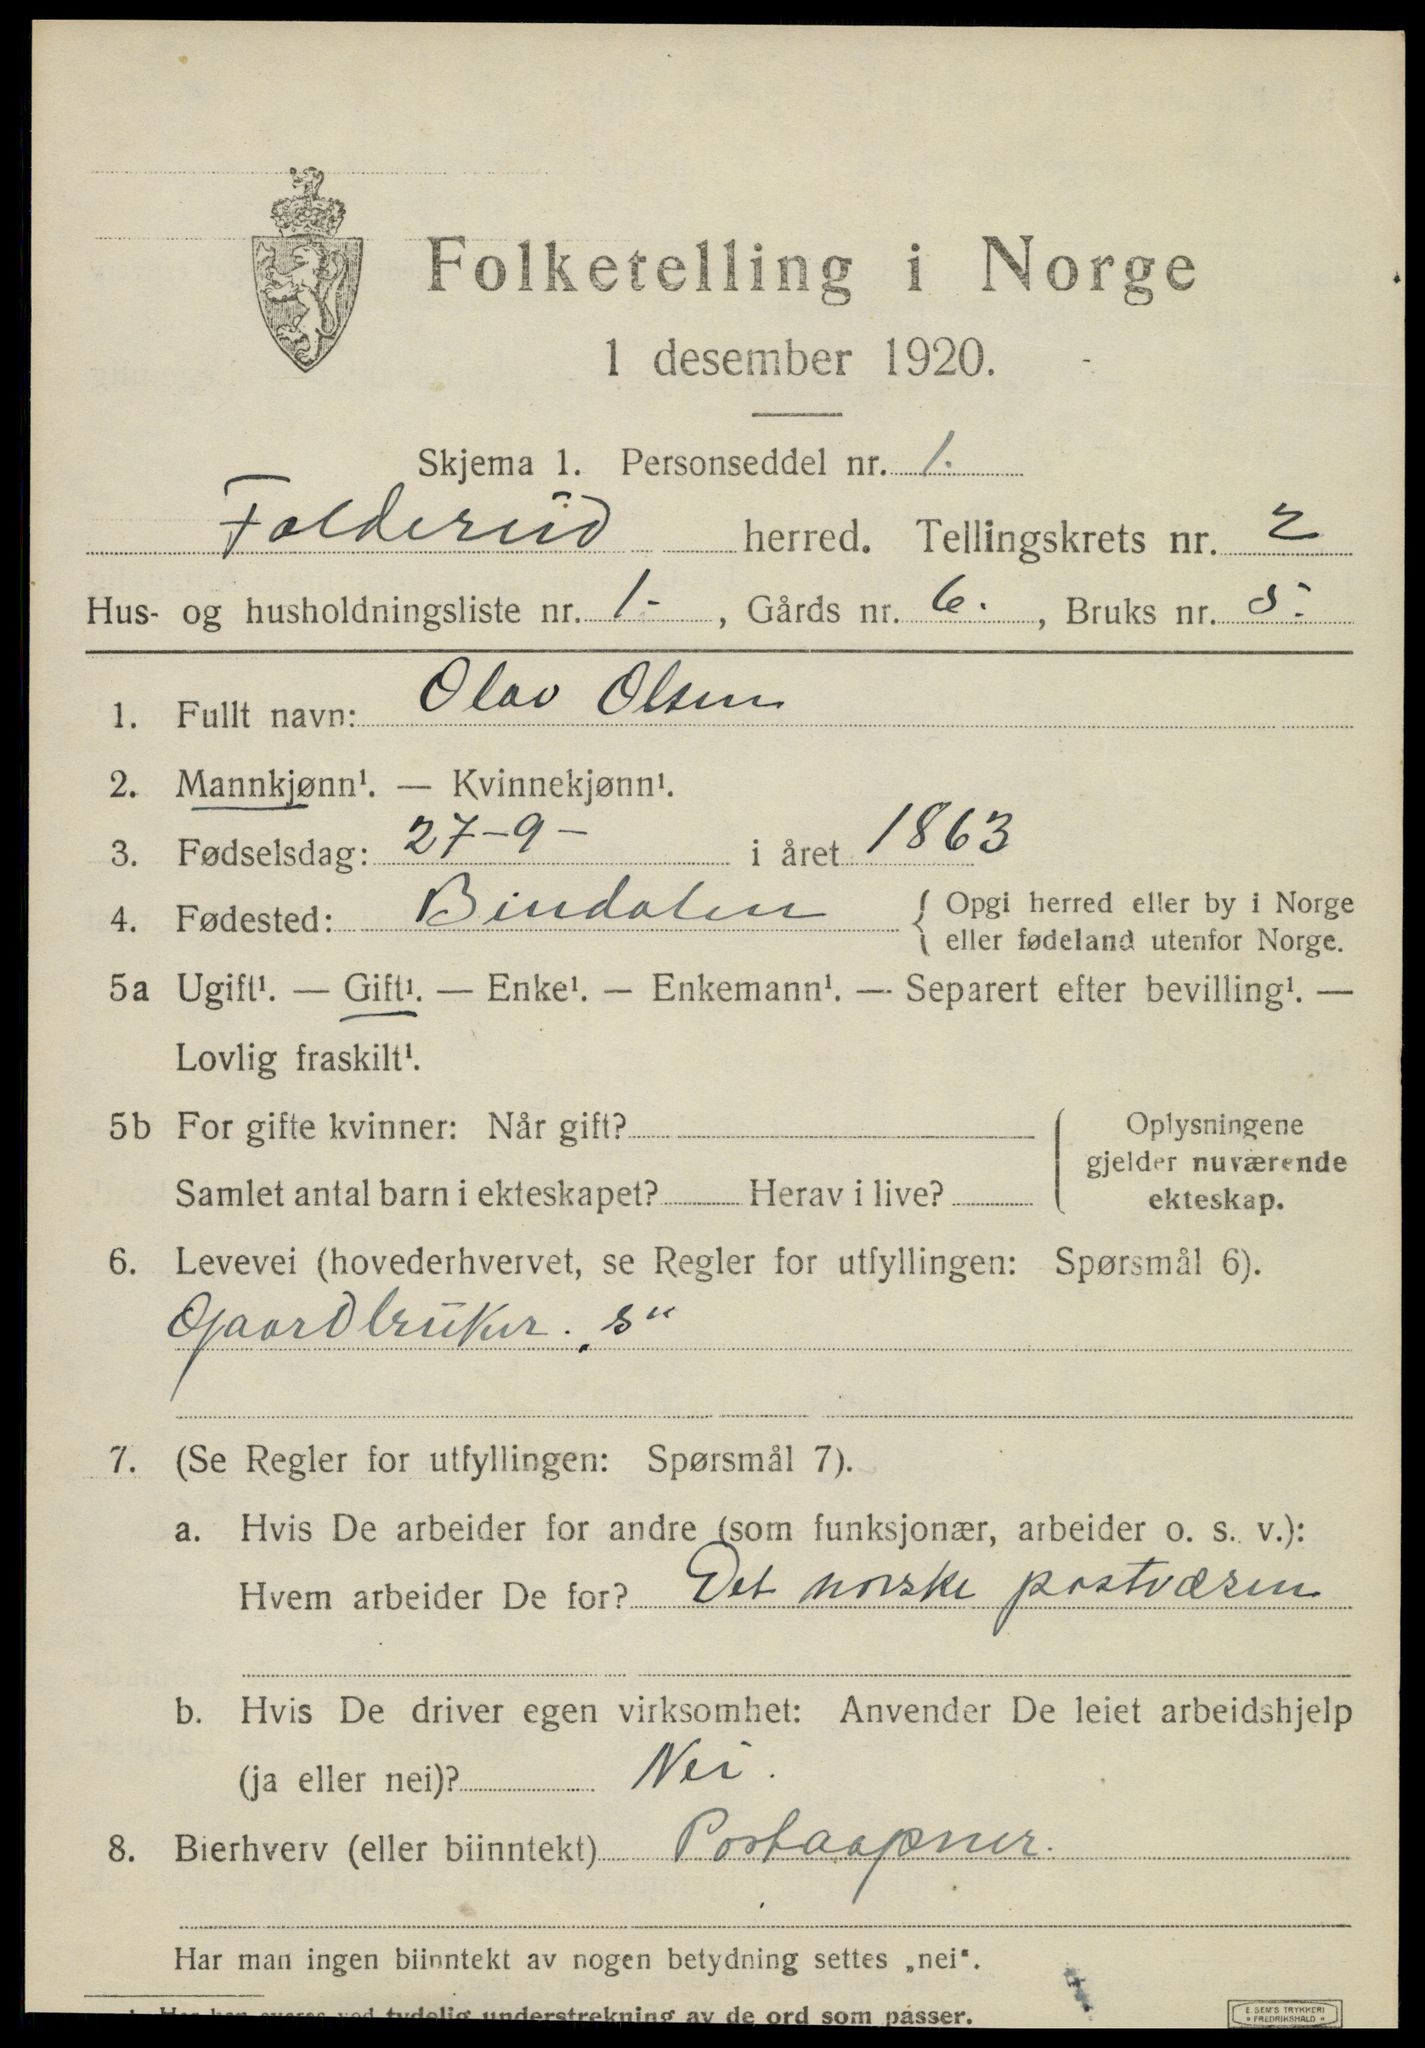 Folketelling i Norge
1 desember 1920.
Skjema 1. Personseddel nr. 1.
Foldereid herred. Tellingskrets nr. 2
Hus- og husholdningsliste nr. 1-, Gårds nr. 6., Bruks nr. 5.
1. Fullt navn: Olav Olsen
2. Mannkjønn¹. — Kvinnekjønn¹.
3. Fødselsdag: 27-9- i året 1863
4. Fødested: Bindalen { Opgi herred eller by i Norge
eller fødeland utenfor Norge.
5a Ugift¹. — Gift¹. — Enke¹. — Enkemann¹. — Separert efter bevilling¹. —
Lovlig fraskilt¹.
5b For gifte kvinner: Når gift?
Samlet antal barn i ekteskapet? Herav i live?
Oplysningene
gjelder nuværende
ekteskap.
6. Levevei (hovederhvervet, se Regler for utfyllingen: Spørsmål 6).
Gaardbruker. „s“
7. (Se Regler for utfyllingen: Spørsmål 7).
a. Hvis De arbeider for andre (som funksjonær, arbeider o. s. v.):
Hvem arbeider De for? Det norske postvæsen
b. Hvis De driver egen virksomhet: Anvender De leiet arbeidshjelp
(ja eller nei)? Nei.
8. Bierhverv (eller biinntekt) Postaapner.
Har man ingen biinntekt av nogen betydning settes „nei“.
ved tydelig understrekning av de ord som passer.
E SEM'S TRYKKERI
FREDRIKSHALD